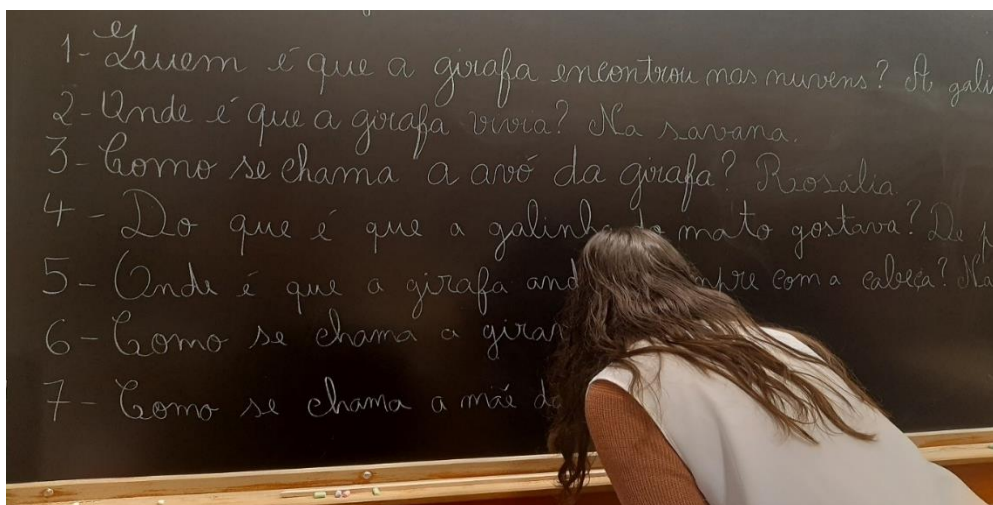 1- Quem é que a girafa encontrou nas nuvens? A
2- Onde é que a girafa vivia? Na savana.
3- Como se chama a avó da girafa? Rosália.
4- Do que é que a galinha do mato gostava? De
5- Onde é que a girafa com a cabeça? Na
6- Como se chama a
7- Como se chama a mãe